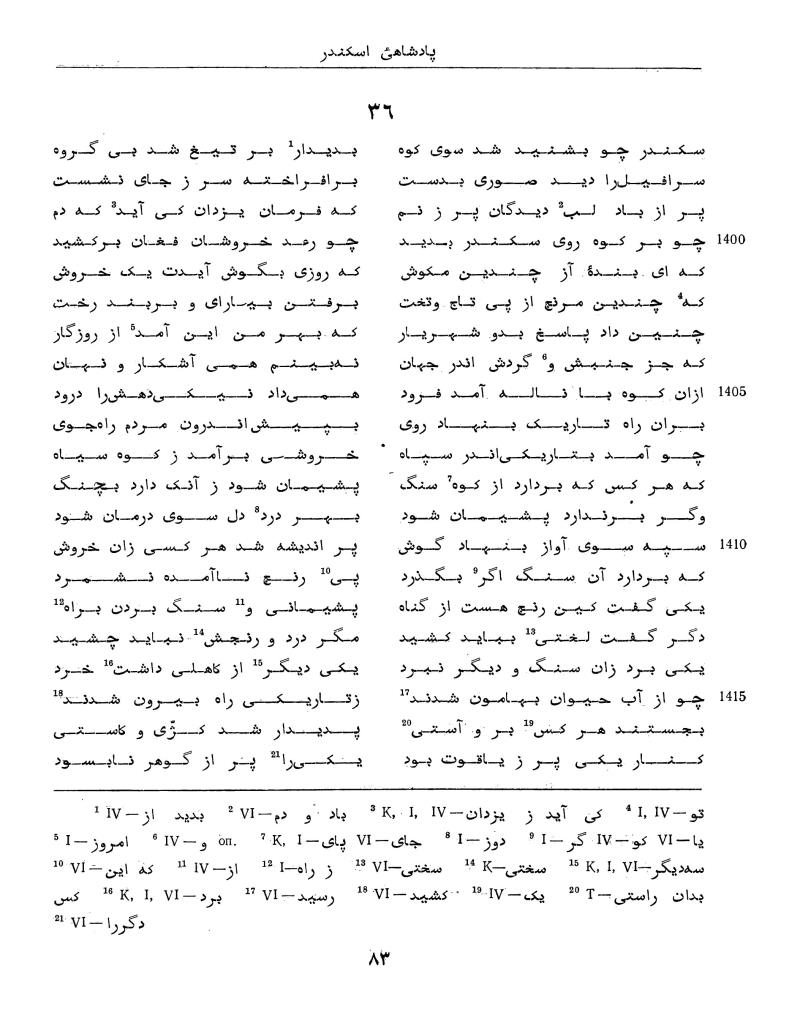 پادشاهئ اسکندر
۳٦
سکندر چو بشنید شد سوی کوه بدیدار¹ بر تیغ شد بی گروه
سرافیل‌را دید صوری بدست برافراخته سر ز جای نشست
پر از باد لب² دیدگان پر ز نم که فرمان یزدان کی آید³ که دم
1400 چو بر کوه روی سکندر بدید چو رعد خروشان فغان برکشید
که ای بندۀ آز چندین مکوش که روزی بگوش آیدت یک خروش
که⁴ چندین مرنج از پی تاج وتخت برفتن بیارای و بربند رخت
چنین داد پاسخ بدو شهریار که بهر من این آمد⁵ از روزگار
که جز جنبش و⁶ گردش اندر جهان نه‌بینم همی آشکار و نهان
1405 ازان کوه با ناله آمد فرود همی‌داد نیکی‌دهش‌را درود
بران راه تاریک بنهاد روی بپیش‌اندرون مردم راه‌جوی
چو آمد بتاریکی‌اندر سپاه خروشی برآمد ز کوه سیاه
که هر کس که بردارد از کوه⁷ سنگ پشیمان شود ز آنک دارد بچنگ
وگر برندارد پشیمان شود بهر درد⁸ دل سوی درمان شود
1410 سپه سوی آواز بنهاد گوش پر اندیشه شد هر کسی زان خروش
که بردارد آن سنگ اگر⁹ بگذرد پی¹⁰ رنج ناآمده نشمرد
یکی گفت کین رنج هست از گناه پشیمانی و¹¹ سنگ بردن براه¹²
دگر گفت لختی¹³ بباید کشید مگر درد و رنجش¹⁴ نباید چشید
یکی برد زان سنگ و دیگر نبرد یکی دیگر¹⁵ از کاهلی داشت¹⁶ خرد
1415 چو از آب حیوان بهامون شدند¹⁷ زتاریکی راه بیرون شدند¹⁸
بجستند هر کس¹⁹ بر و آستی²⁰ پدیدار شد کژّی و کاستی
کنار یکی پر ز یاقوت بود یکی‌را²¹ پر از گوهر نابسود
¹ IV—بدید از ² VI—باد و دم ³ K, I, IV—کی آید ز یزدان ⁴ I, IV—تو
⁵ I—امروز ⁶ IV—و оп. ⁷ K, I—پای VI—جای ⁸ I—دوز ⁹ I—گر IV—کو VI—یا
¹⁰ VI—که این ¹¹ IV—از ¹² I—ز راه ¹³ VI—سختی ¹⁴ K—سختی ¹⁵ K, I, VI—سه‌دیگر
¹⁶ K, I, VI—برد ¹⁷ VI—رسید ¹⁸ VI—کشید ¹⁹ IV—یک ²⁰ T—بدان راستی کس
²¹ VI—دگررا
۸۳